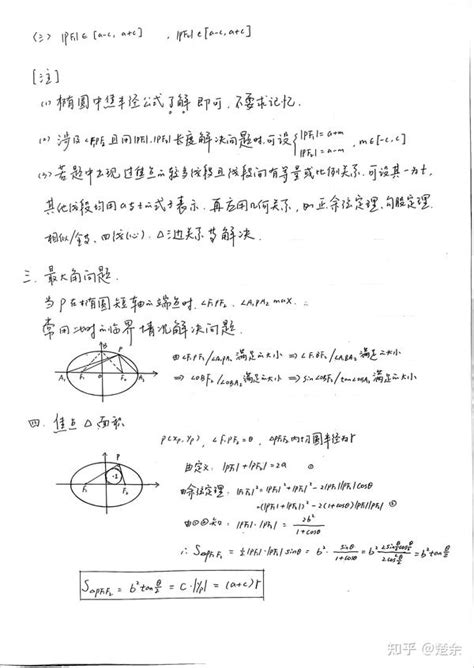 (三) |PF₁|∈[a-c, a+c] , |PF₂|∈[a-c, a+c]
[注]
(1) 椭圆中焦半径公式了解即可, 不要求记忆.
(2) 涉及△F₁PF₂且用|PF₁|·|PF₂|长度解决问题时, 可设{|PF₁|=a+m |PF₂|=a-m , m∈[-c, c]
(3) 若题中出现过焦点的较多线段且线段间有等量或比例关系, 可设其一为t,
其他线段均用a与t的式子表示. 再应用几何关系, 如正余弦定理, 勾股定理,
相似/全等、四线(心)、△三边关系等解决.
三. 最大角问题.
当P在椭圆短轴的端点时, ∠F₁PF₂、∠A₁PA₂ max.
常用此时的临界情况解决问题.
B
P
A₁ F₁ O F₂ A₂
由∠F₁PF₂/∠A₁PA₂满足的大小 ⇒ ∠F₁BF₂/∠A₁BA₂满足的大小
⇒ ∠OBF₂/∠OBA₂满足的大小 ⇒ sin∠OBF₂/tan∠OBA₂满足的大小
四. 焦点△面积
P(xₚ, yₚ), ∠F₁PF₂=θ, △PF₁F₂内切圆半径为r
P
F₁ F₂
由定义: |PF₁|+|PF₂|=2a ①
由余弦定理: |F₁F₂|²=|PF₁|²+|PF₂|²-2|PF₁||PF₂|cosθ
=(|PF₁|+|PF₂|)²-2(1+cosθ)|PF₁||PF₂| ②
由①②知: |PF₁|·|PF₂|=2b²/(1+cosθ)
∴ S△PF₁F₂=½|PF₁|·|PF₂|sinθ=b²·sinθ/(1+cosθ)=b²·2sin(θ/2)cos(θ/2)/2cos²(θ/2)=b²tan(θ/2)
S△PF₁F₂=b²tan(θ/2)=c·|yₚ|=(a+c)r
知乎 @楚东